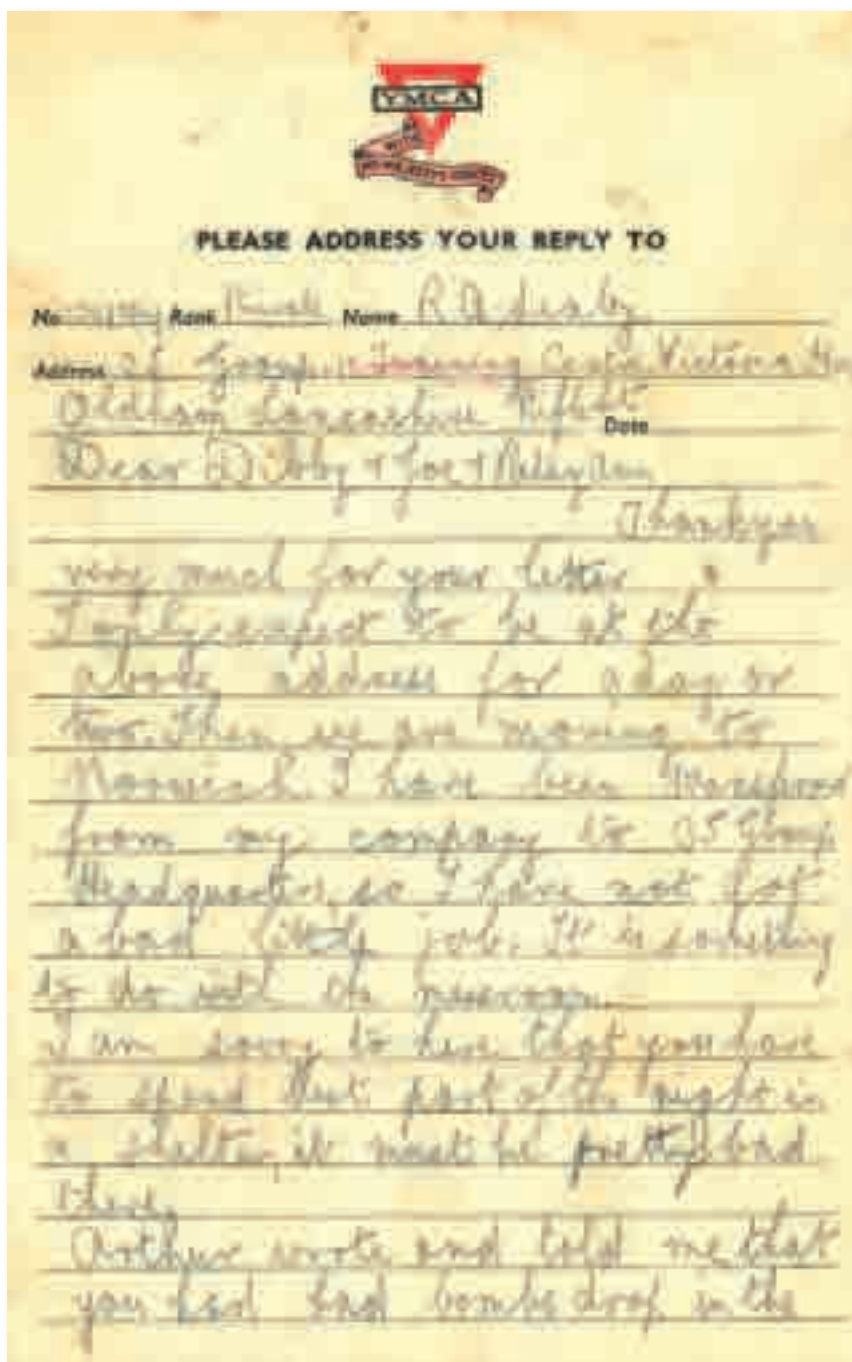 YMCA
PLEASE ADDRESS YOUR REPLY TO
No Rank Name R A
Address Group Training Centre Victoria
Oldham Lancashire Date
Dear Dibby & Joe &
Thankyou
very much for your letter
I only expect to be at the
above address for a day or
two. Then we are moving to
Norwich. I have been
from my company to Group
Headquarters, so I have not got
a bad little job. It is something
to do with the
I am sorry to hear that you have
to spend part of the night in
a shelter, it must be pretty bad
there.
Arthur wrote and told me that
you had had bombs drop in the